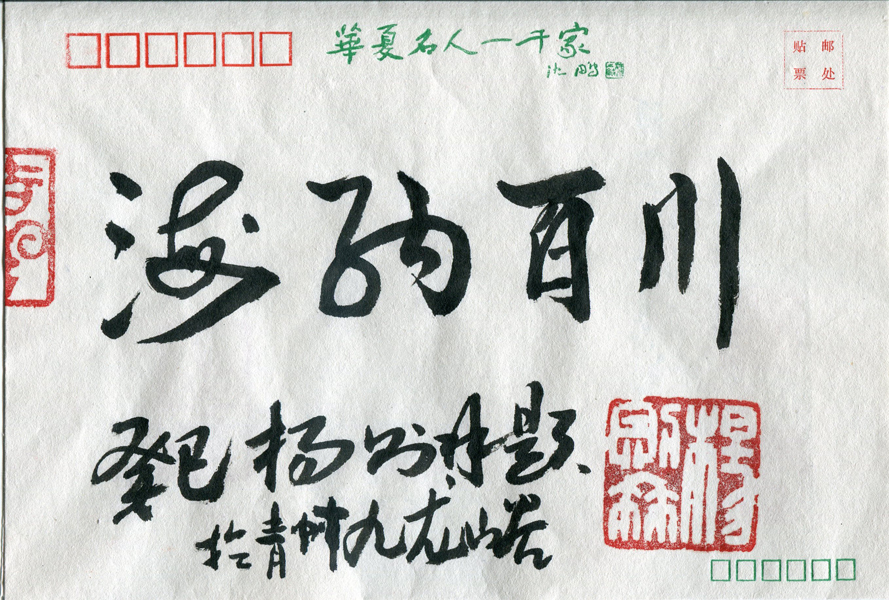 華夏名人一千家
沈鹏
贴邮
票处
海纳百川
癸巳 杨 题
於青州九龙峪